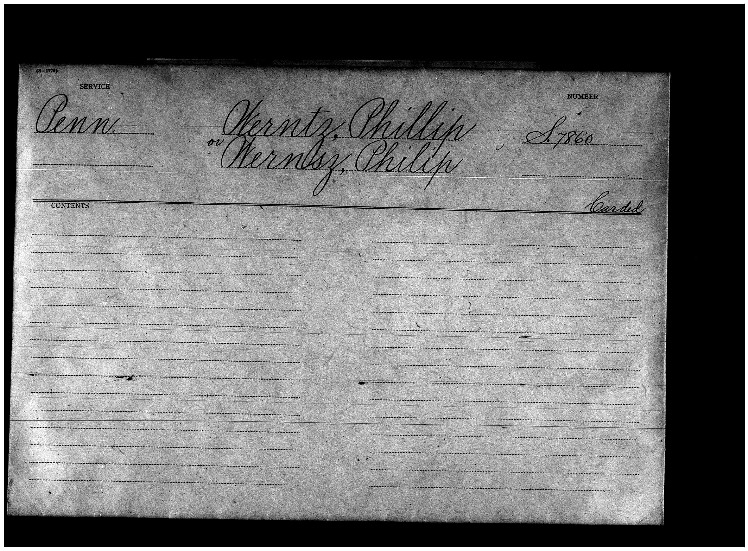 SERVICE
NUMBER
Penn.
Werntz, Phillip
or
Werntsz, Philip
S.7860
CONTENTS
Carded